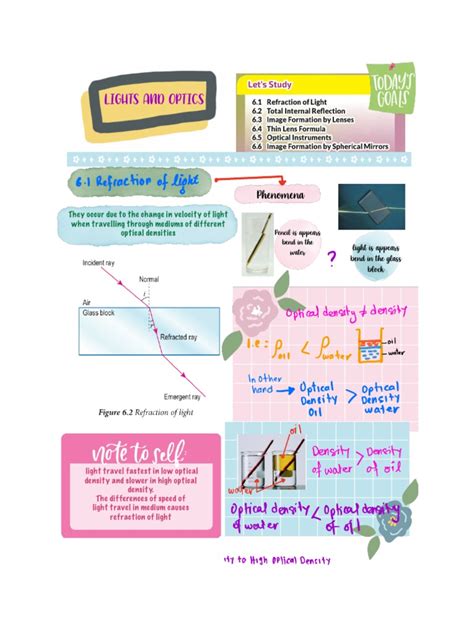 LIGHTS AND OPTICS
Let's Study
6.1 Refraction of Light
6.2 Total Internal Reflection
6.3 Image Formation by Lenses
6.4 Thin Lens Formula
6.5 Optical Instruments
6.6 Image Formation by Spherical Mirrors
TODAY'S
GOALS
6.1 Refraction of light
They occur due to the change in velocity of light
when travelling through mediums of different
optical densities
Phenomena
Pencil is appears
bend in the
water
?
light is appears
bend in the glass
block
Incident ray
Normal
i
Air
Glass block
r
Refracted ray
Emergent ray
Figure 6.2 Refraction of light
Optical density ≠ density
i.e : ρoil < ρwater
oil
water
In other
hand → Optical
Density
Oil
>
Optical
Density
water
note to self:
light travel fastest in low optical
density and slower in high optical
density.
The differences of speed of
light travel in medium causes
refraction of light
oil
water
Density
of water
>
Density
of oil
Optical density
of water
<
Optical density
of oil
ity to High Optical Density